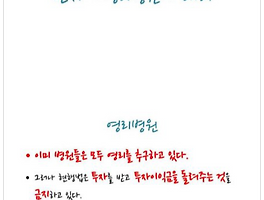 영리병원
• 이미 병원들은 모두 영리를 추구하고 있다.
• 그러나 현행법은 투자를 받고 투자이익금을 돌려주는 것을
금지하고 있다.